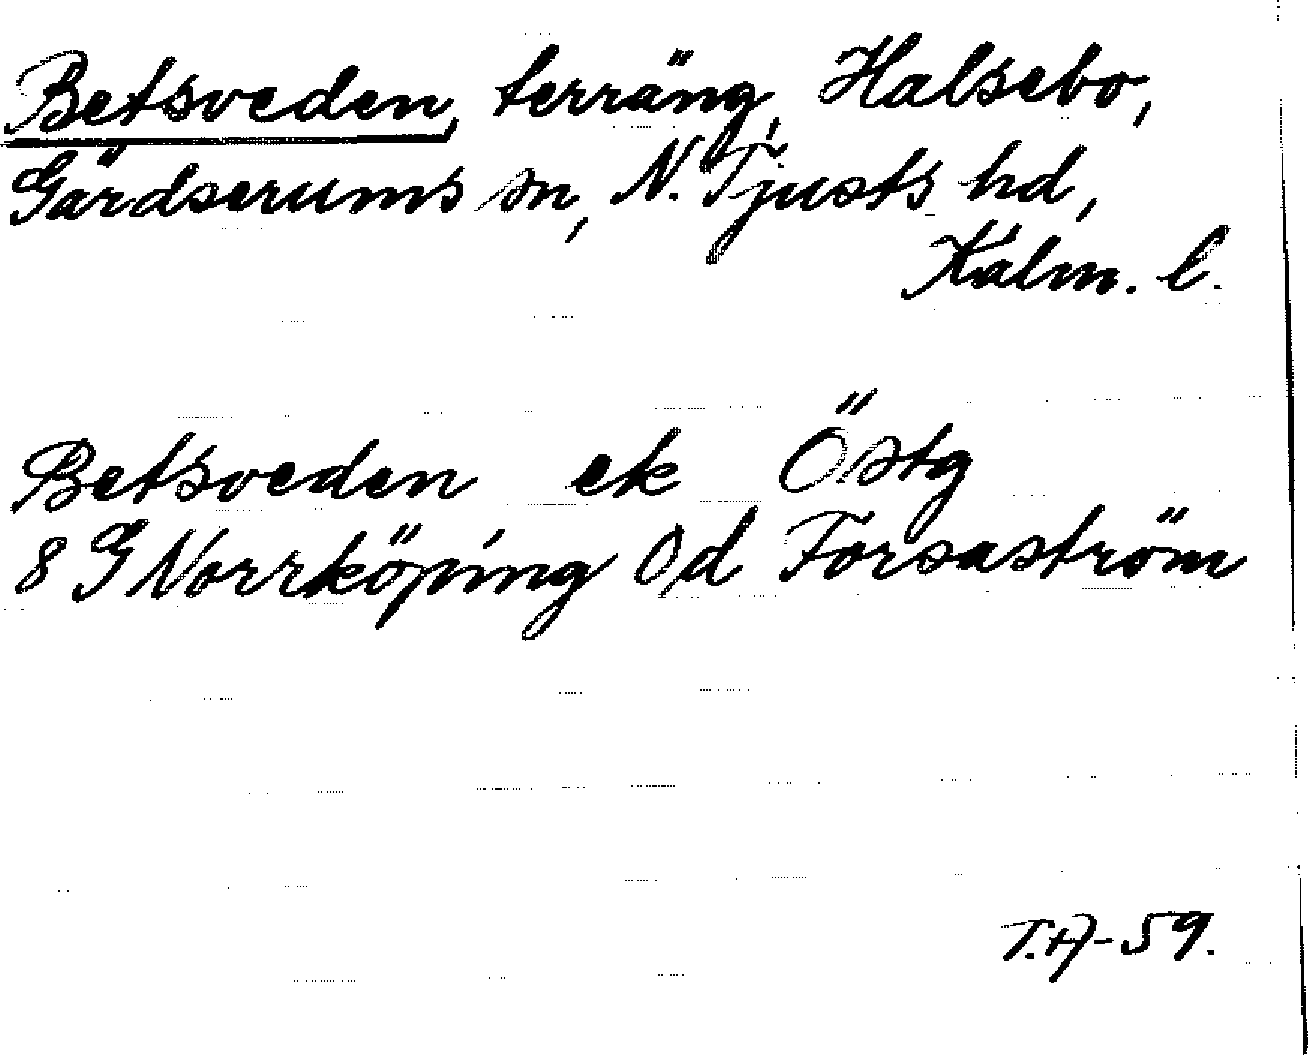 Betsveden, terräng, Halsebo,
Gärdserums sn, N. Tjusts hd,
Kalm. l.
Betsveden ek Östg
8 G Norrköping Od Forsaström
T.A-59.